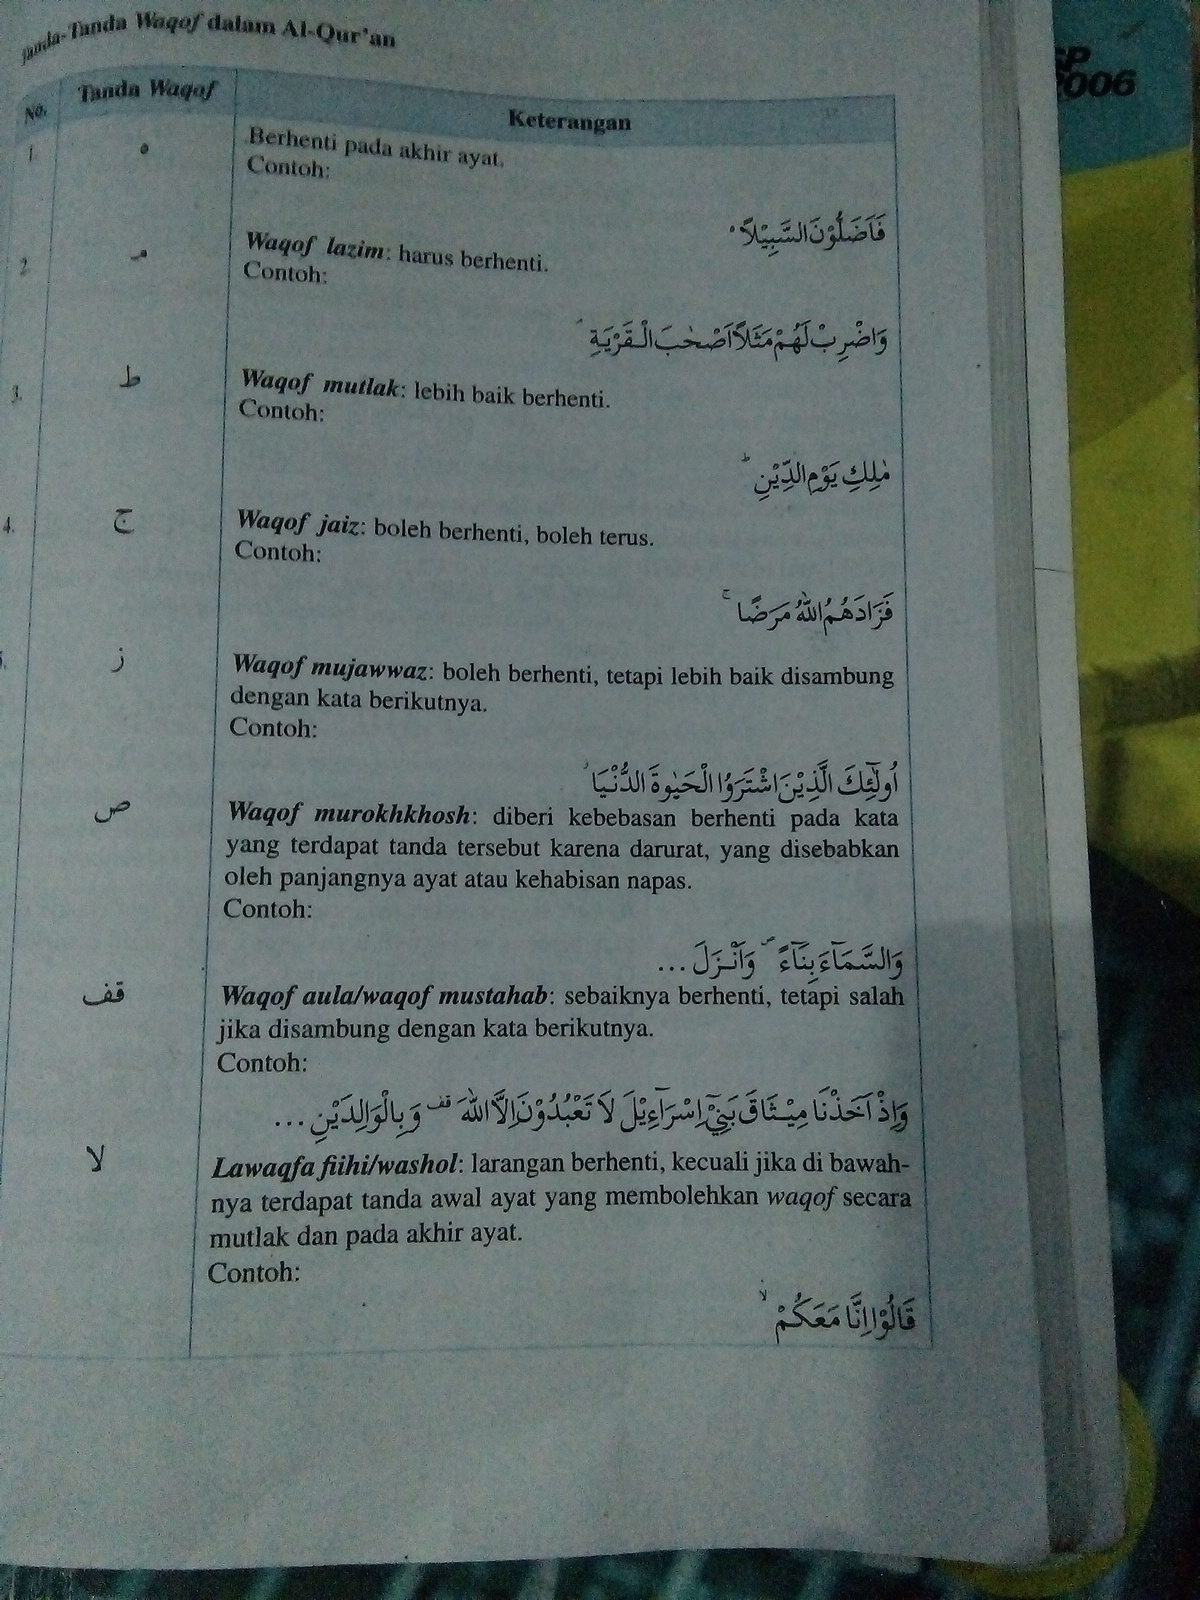 Tanda-Tanda Waqof dalam Al-Qur'an
No. Tanda Waqof Keterangan
1. ه Berhenti pada akhir ayat.
Contoh:
فَاَضَلُّوْنَ السَّبِيْلَا ۰
2. مـ Waqof lazim: harus berhenti.
Contoh:
وَاضْرِبْ لَهُمْ مَثَلًا اَصْحٰبَ الْقَرْيَةِ ۘ
3. ط Waqof mutlak: lebih baik berhenti.
Contoh:
مٰلِكِ يَوْمِ الدِّيْنِ ؕ
4. ج Waqof jaiz: boleh berhenti, boleh terus.
Contoh:
فَزَادَهُمُ اللّٰهُ مَرَضًا ۚ
ز Waqof mujawwaz: boleh berhenti, tetapi lebih baik disambung
dengan kata berikutnya.
Contoh:
اُولٰٓئِكَ الَّذِيْنَ اشْتَرَوُا الْحَيٰوةَ الدُّنْيَا ز
ص Waqof murokhkhosh: diberi kebebasan berhenti pada kata
yang terdapat tanda tersebut karena darurat, yang disebabkan
oleh panjangnya ayat atau kehabisan napas.
Contoh:
وَالسَّمَآءَ بِنَآءً ۖ وَاَنْزَلَ ...
قف Waqof aula/waqof mustahab: sebaiknya berhenti, tetapi salah
jika disambung dengan kata berikutnya.
Contoh:
وَاِذْ اَخَذْنَا مِيْثَاقَ بَنِيْٓ اِسْرَآءِيْلَ لَا تَعْبُدُوْنَ اِلَّا اللّٰهَ قف وَبِالْوَالِدَيْنِ ...
لا Lawaqfa fiihi/washol: larangan berhenti, kecuali jika di bawah-
nya terdapat tanda awal ayat yang membolehkan waqof secara
mutlak dan pada akhir ayat.
Contoh:
قَالُوْا اِنَّا مَعَكُمْ ۙ
2006